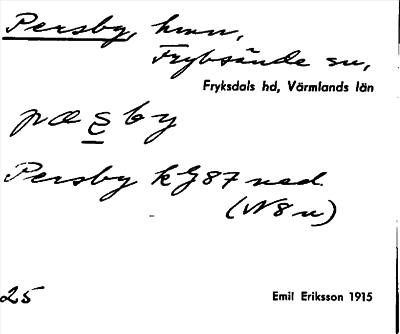 Persby, hmn,
Frykssände sn,
Fryksdals hd, Värmlands län
pæs̱by
Persby kG87 ned.
(N8u)
25
Emil Eriksson 1915